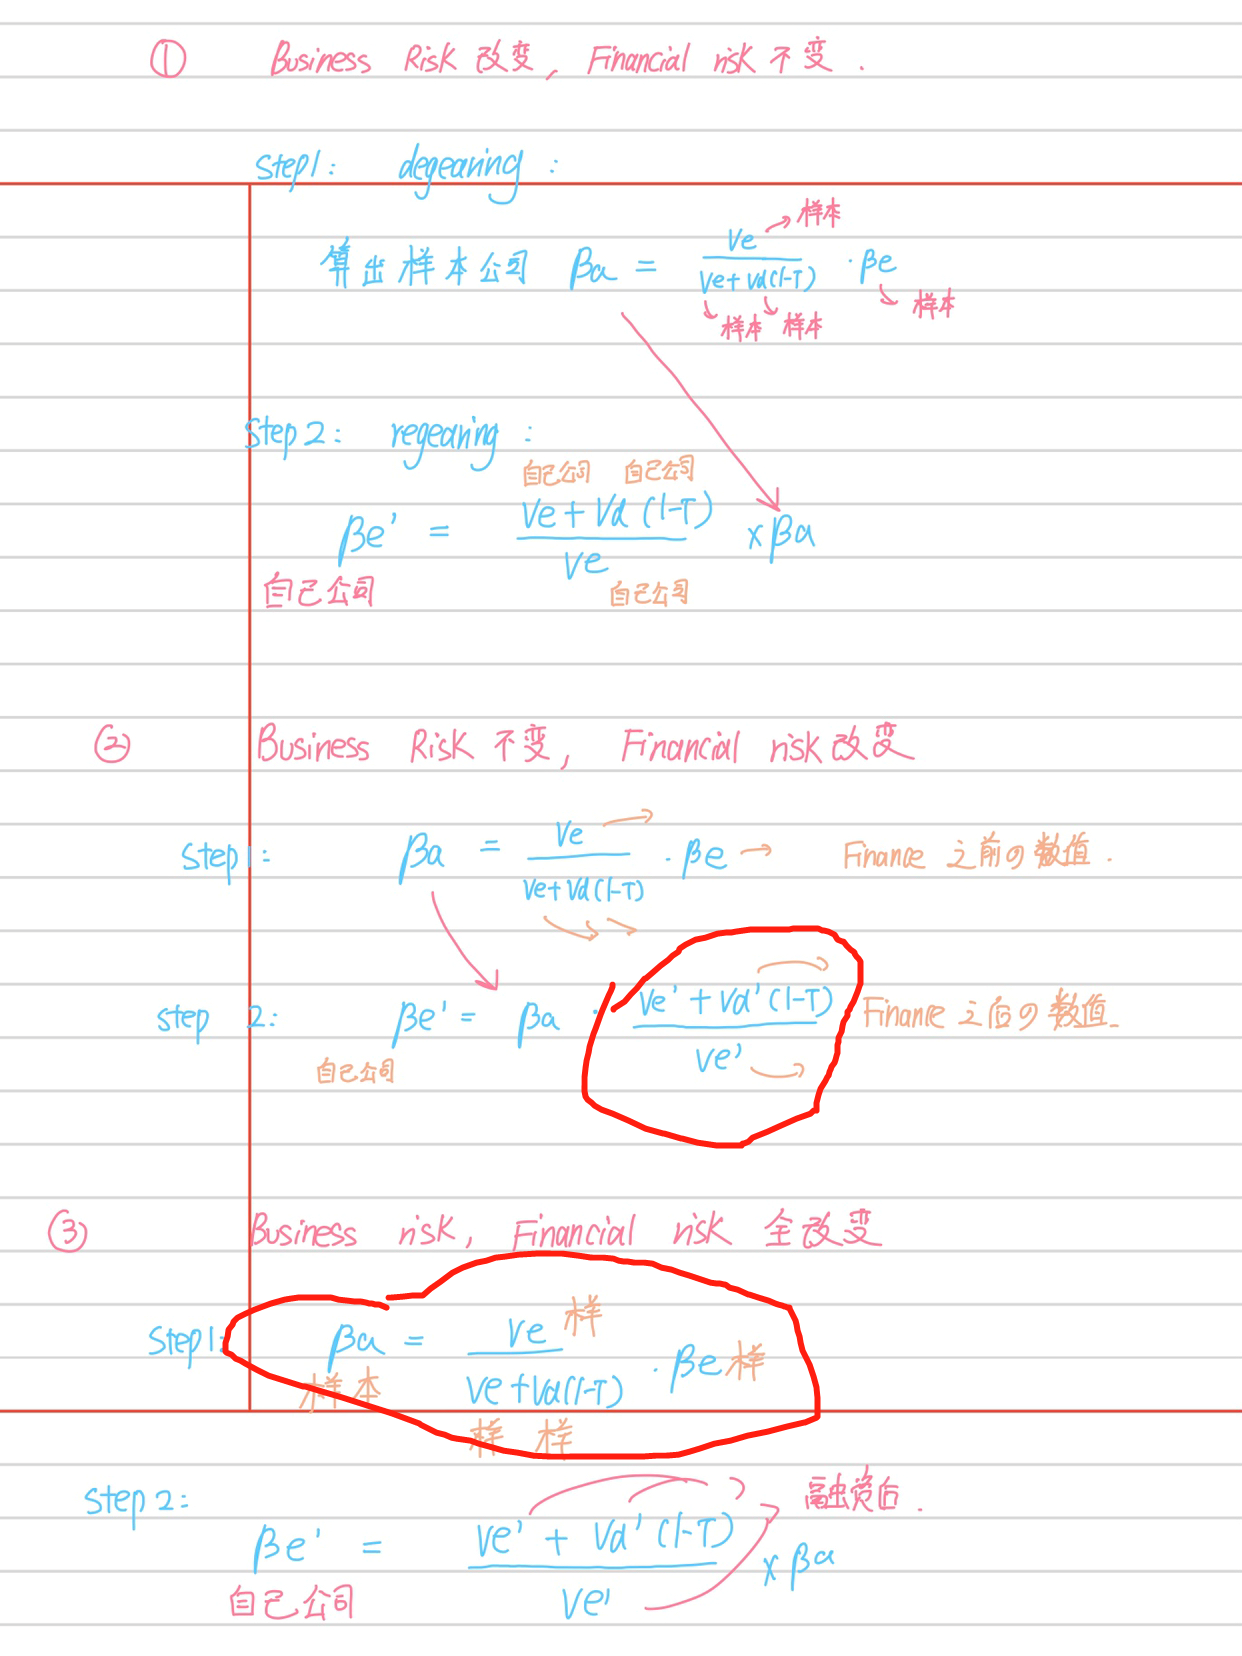 ① Business Risk 改变, Financial risk 不变.
Step1: degearing:
样本
算出样本公司 βa = Ve / Ve+Vd(1-T) · βe
样本 样本 样本
Step2: regearing:
自己公司 自己公司
βe' = Ve+Vd(1-T) / Ve × βa
自己公司 自己公司
② Business Risk 不变, Financial risk 改变
Step1: βa = Ve / Ve+Vd(1-T) · βe → Finance 之前の数值.
step 2: βe' = βa · Ve'+Vd'(1-T) / Ve' Finance 之后の数值.
自己公司
③ Business risk, Financial risk 全改变
Step1: βa = Ve样 / Ve+Vd(1-T) · βe样
样本 样 样
Step2: 融资后.
βe' = Ve'+Vd'(1-T) / Ve' × βa
自己公司